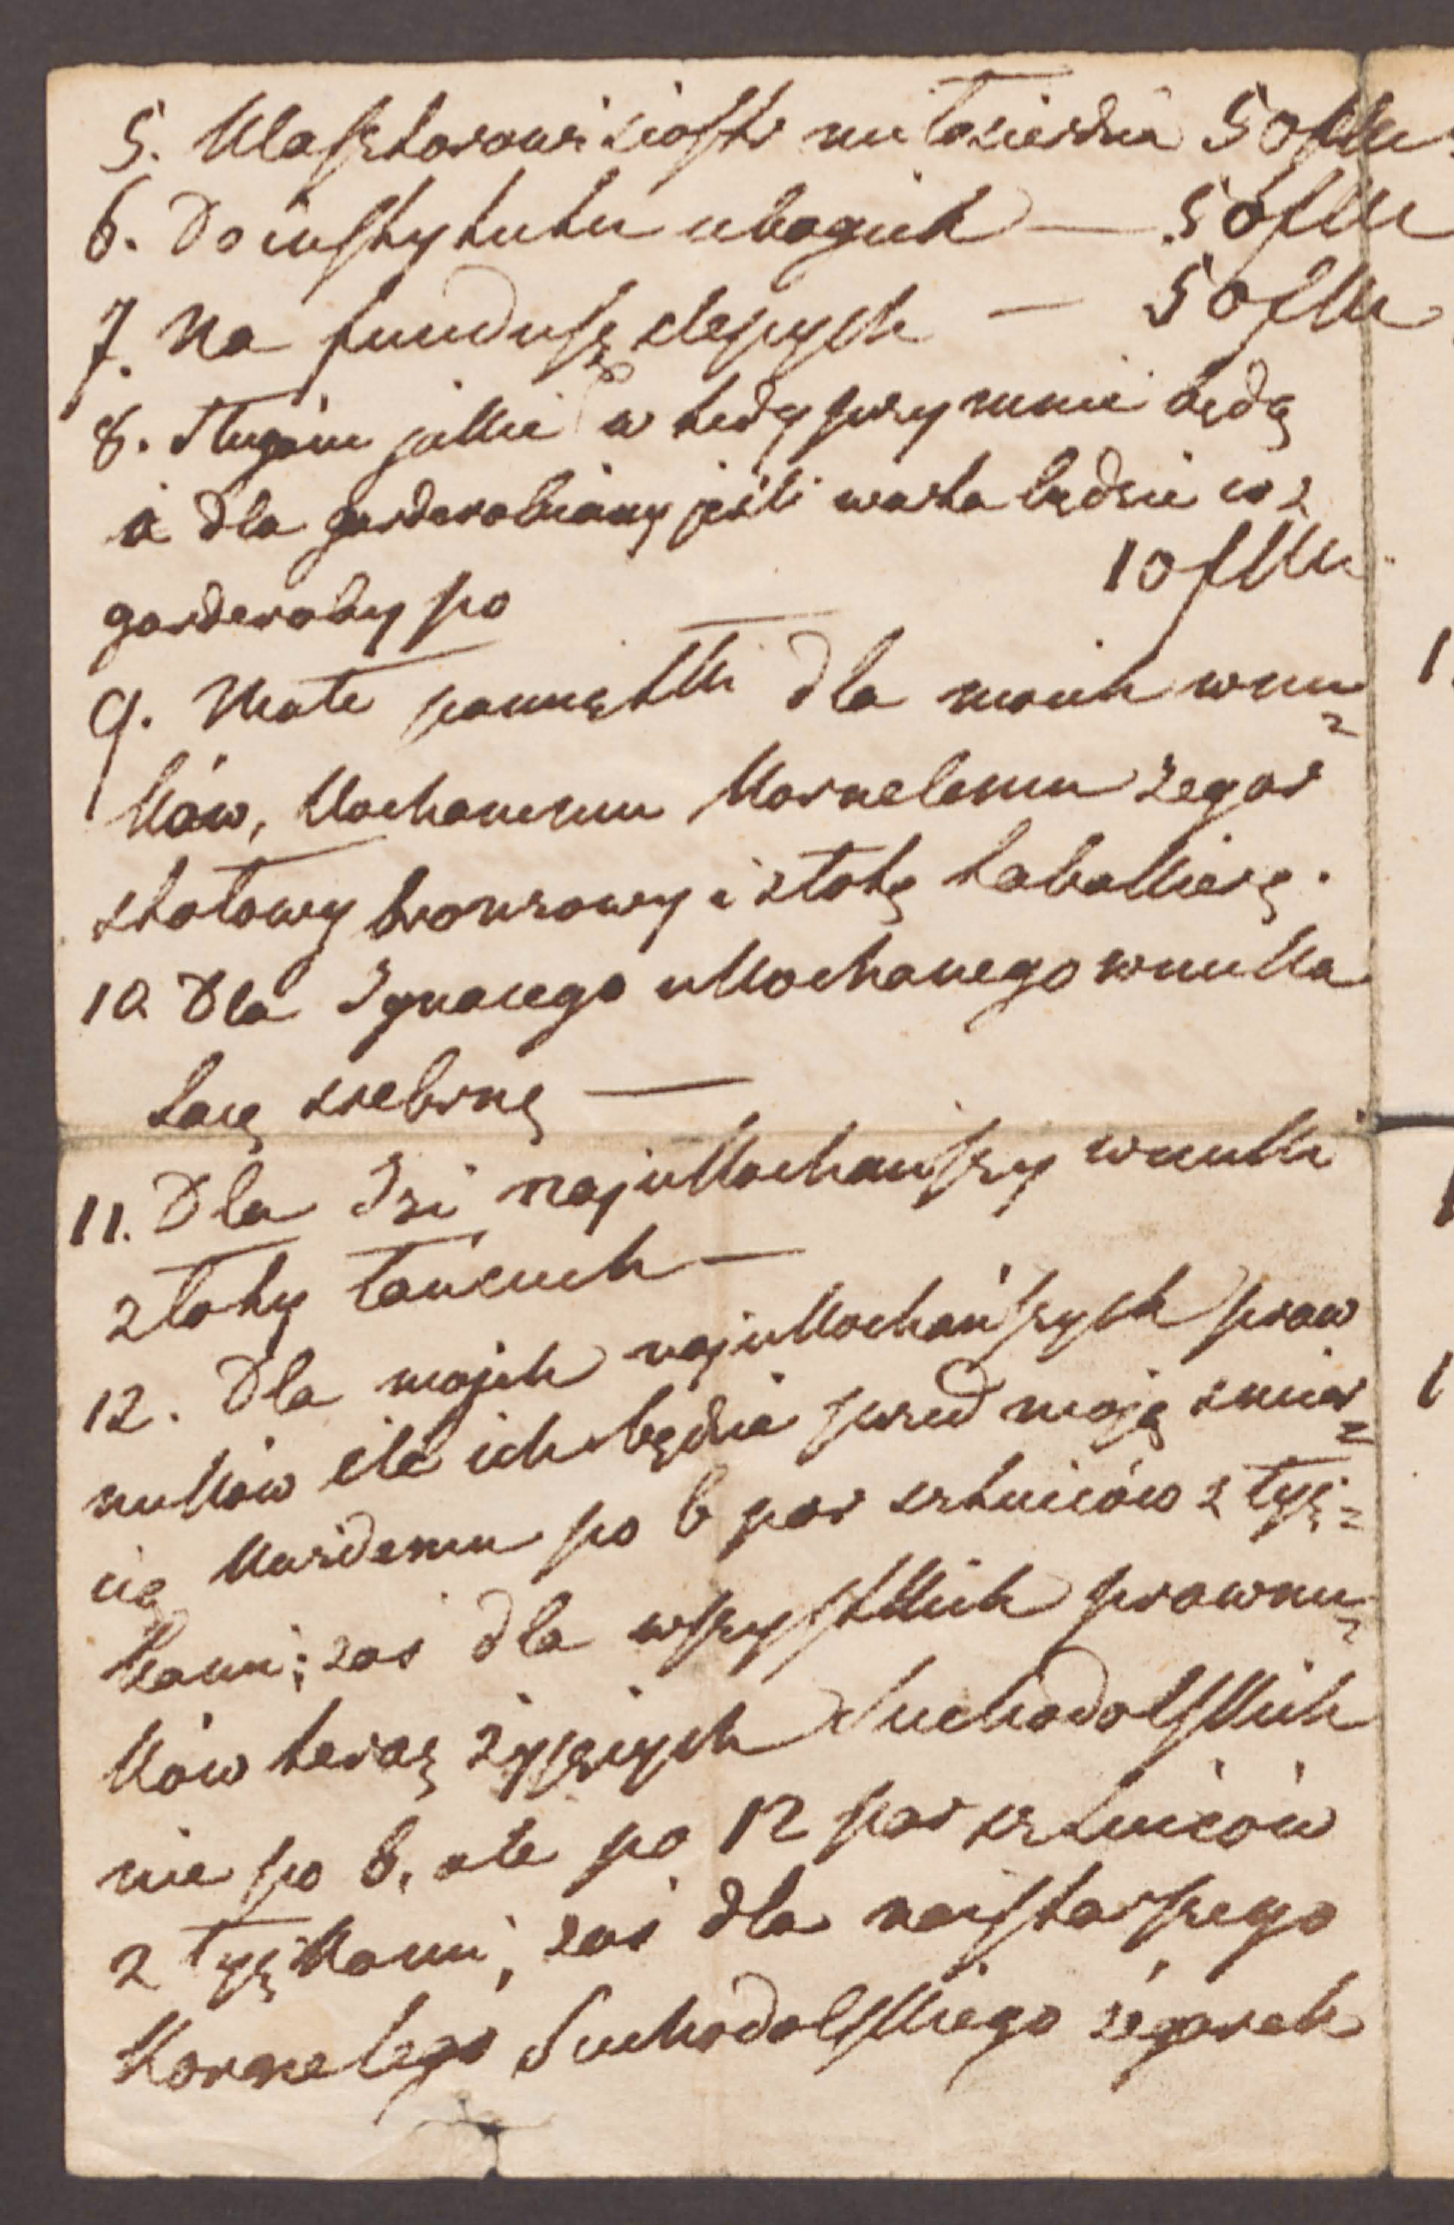 5. Klasztorowi siostr miłosierdzia 50 fMk
6. Do instytutu ubogich — 50 fMk
7. Na fundusz slepych — 50 fMk
8. Sługóm jakie w tedy przy mnie będą
i dla garderobiany jeśli warta będzie co z
garderoby po 10 fMk
9. Małe pamiątki dla moich wnu=
ków, Kochanemu Kornelemu zegar
stołowy bronzowy i złotą tabakierę.
10 Dla Ignacego ukochanego wnuka
tacę srebrną —
11. Dla Izi najukochańszy wnuki
złoty łańcuch —
12. Dla mojch najukochańszych praw
nuków ile ich będzie przed moją smier=
cią každemu po 6 par sztućców z łyż=
kami; zas dla wszystkich prawnu=
ków teraz żyjących Suchodolskich
nie po 6, ale po 12 par sztućców
z łyżkami, zaś dla naistarszego
Kornelego Suchodolskiego zégarek